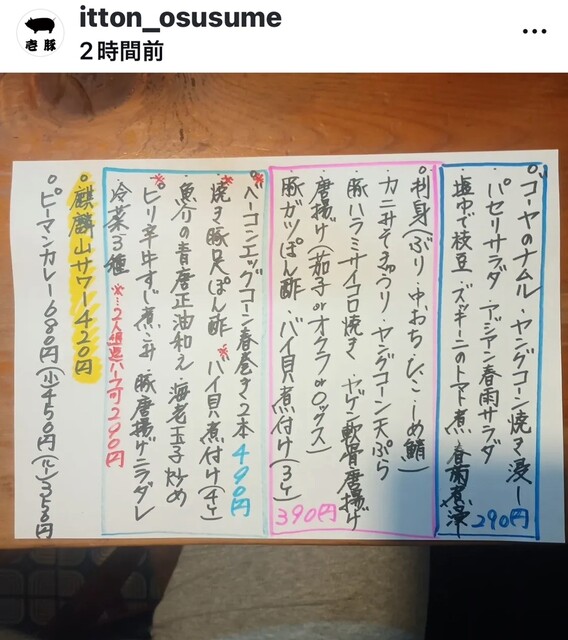 itton_osusume
2時間前
壱豚
ゴーヤのナムル・ヤングコーン焼き浸し
パセリサラダ・アジアン春雨サラダ
塩ゆで枝豆・ズッキーニのトマト煮・春菊煮浸
290円
刺身(ぶり・中おち・たこ・しめ鯖)
カニみそきゅうり・ヤングコーン天ぷら
豚ハラミサイコロ焼き・ヤゲン軟骨唐揚げ
唐揚げ(茄子orオクラorロックス)
豚ガツぽん酢・バイ貝煮付け(3ケ)
390円
※ベーコンエッグコーン春巻き2本
490円
※焼き豚足ぽん酢 ※バイ貝煮付け(4ケ)
魚介の青唐正油和え 海老玉子炒め
※ピリ辛牛すじ煮込み 豚唐揚げニラダレ
冷菜3種
※…2人組迄ハーフ可290円
麒麟山サワー420円
ピーマンカレー680円(小)450円(ルー)350円